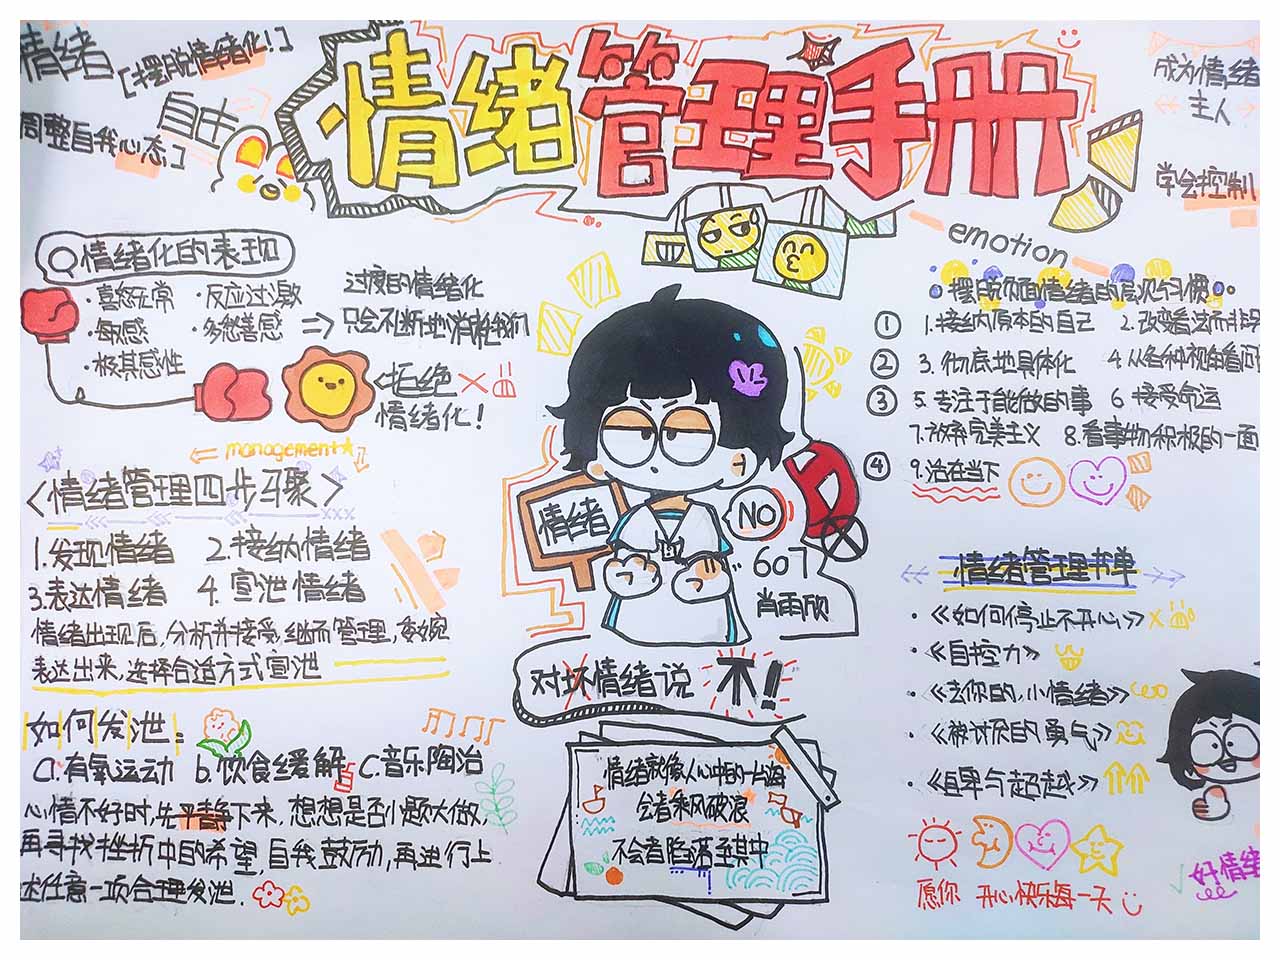 情绪管理手册
情绪
[摆脱情绪化!]
自由
调整自我心态]
成为情绪
主人
学会控制
情绪化的表现
·喜怒无常 ·反应过激
·敏感 ·多愁善感
·极其感性
过度的情绪化
=> 只会不断地消耗我们
拒绝
情绪化!
management
<情绪管理四步骤>
1.发现情绪 2.接纳情绪
3.表达情绪 4.宣泄情绪
情绪出现后,分析并接受,继而管理,委婉
表达出来,选择合适方式宣泄
如何发泄:
a.有氧运动 b.饮食缓解 c.音乐陶冶
心情不好时,先平静下来,想想是否小题大做,
再寻找挫折中的希望,自我鼓励,再进行上
述任意一项合理发泄.
情绪
NO
607
肖雨欣
对坏情绪说 不!!
情绪就像人心中的一片海
会者乘风破浪
不会者陷落至其中
emotion
摆脱负面情绪的层次习惯
① 1.接纳原本的自己 2.改变看法而非
② 3.彻底地具体化 4.从各种视角看问
③ 5.专注于能做的事 6.接受命运
7.放弃完美主义 8.看事物积极的一面
④ 9.活在当下
情绪管理书单
·《如何停止不开心》
·《自控力》
·《去你的,小情绪》
·《被讨厌的勇气》
·《自卑与超越》
愿你 开心快乐每一天
好情绪